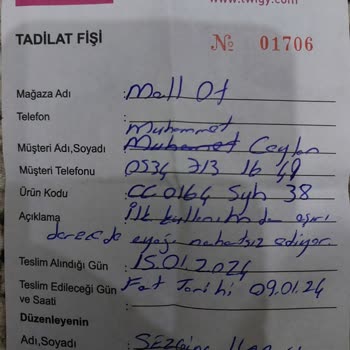 www.twigy.com
TADİLAT FİŞİ № 01706
Mağaza Adı : Mall Of
Telefon :
Muhammet
Müşteri Adı,Soyadı : Muhamet Ceylan
Müşteri Telefonu : 0534 713 16 49
Ürün Kodu : CC0164 Syh 38
Açıklama : İlk kullanımdan aşırı
derecede ayağı rahatsız ediyor.
Teslim Alındığı Gün : 15.01.2024
Teslim Edileceği Gün : Fat Tarihi 09.01.24
ve Saati
Düzenleyenin
Adı,Soyadı